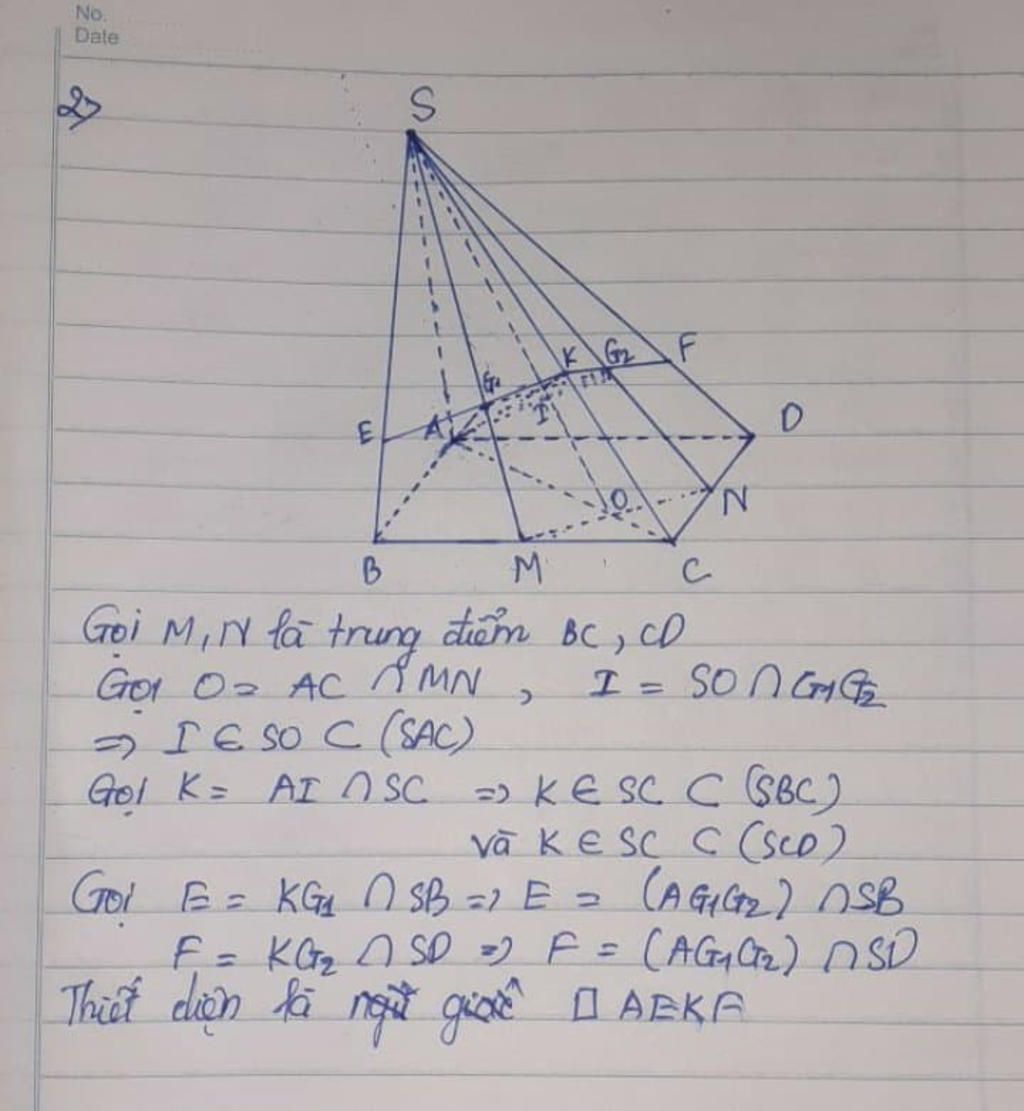 No.
Date
2)
S
K G2 F
G1
E A I D
O N
B M C
Gọi M, N là trung điểm BC, CD
Gọi O = AC ∩ MN , I = SO ∩ G1G2
=> I ∈ SO ⊂ (SAC)
Gọi K = AI ∩ SC => K ∈ SC ⊂ (SBC)
và K ∈ SC ⊂ (SCD)
Gọi E = KG1 ∩ SB => E = (AG1G2) ∩ SB
F = KG2 ∩ SD => F = (AG1G2) ∩ SD
Thiết diện là □ AEKF